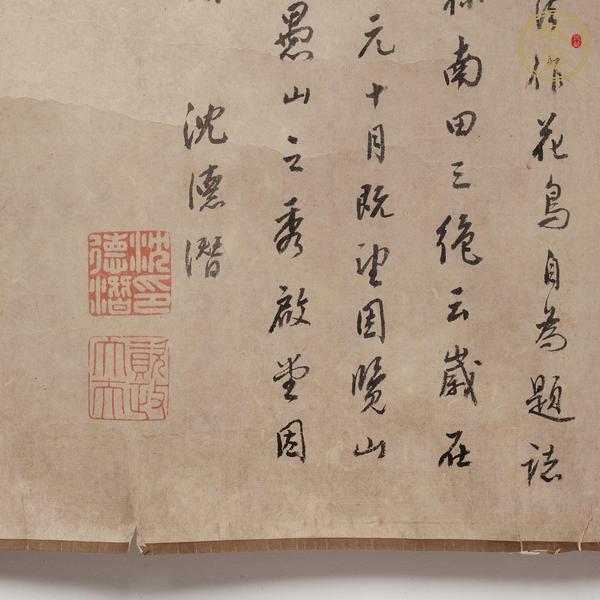 作花鳥自為題誌
南田三絕云歲在
元十月既望因覽山
愚山之秀啟堂因
沈德潛
沈德潛印